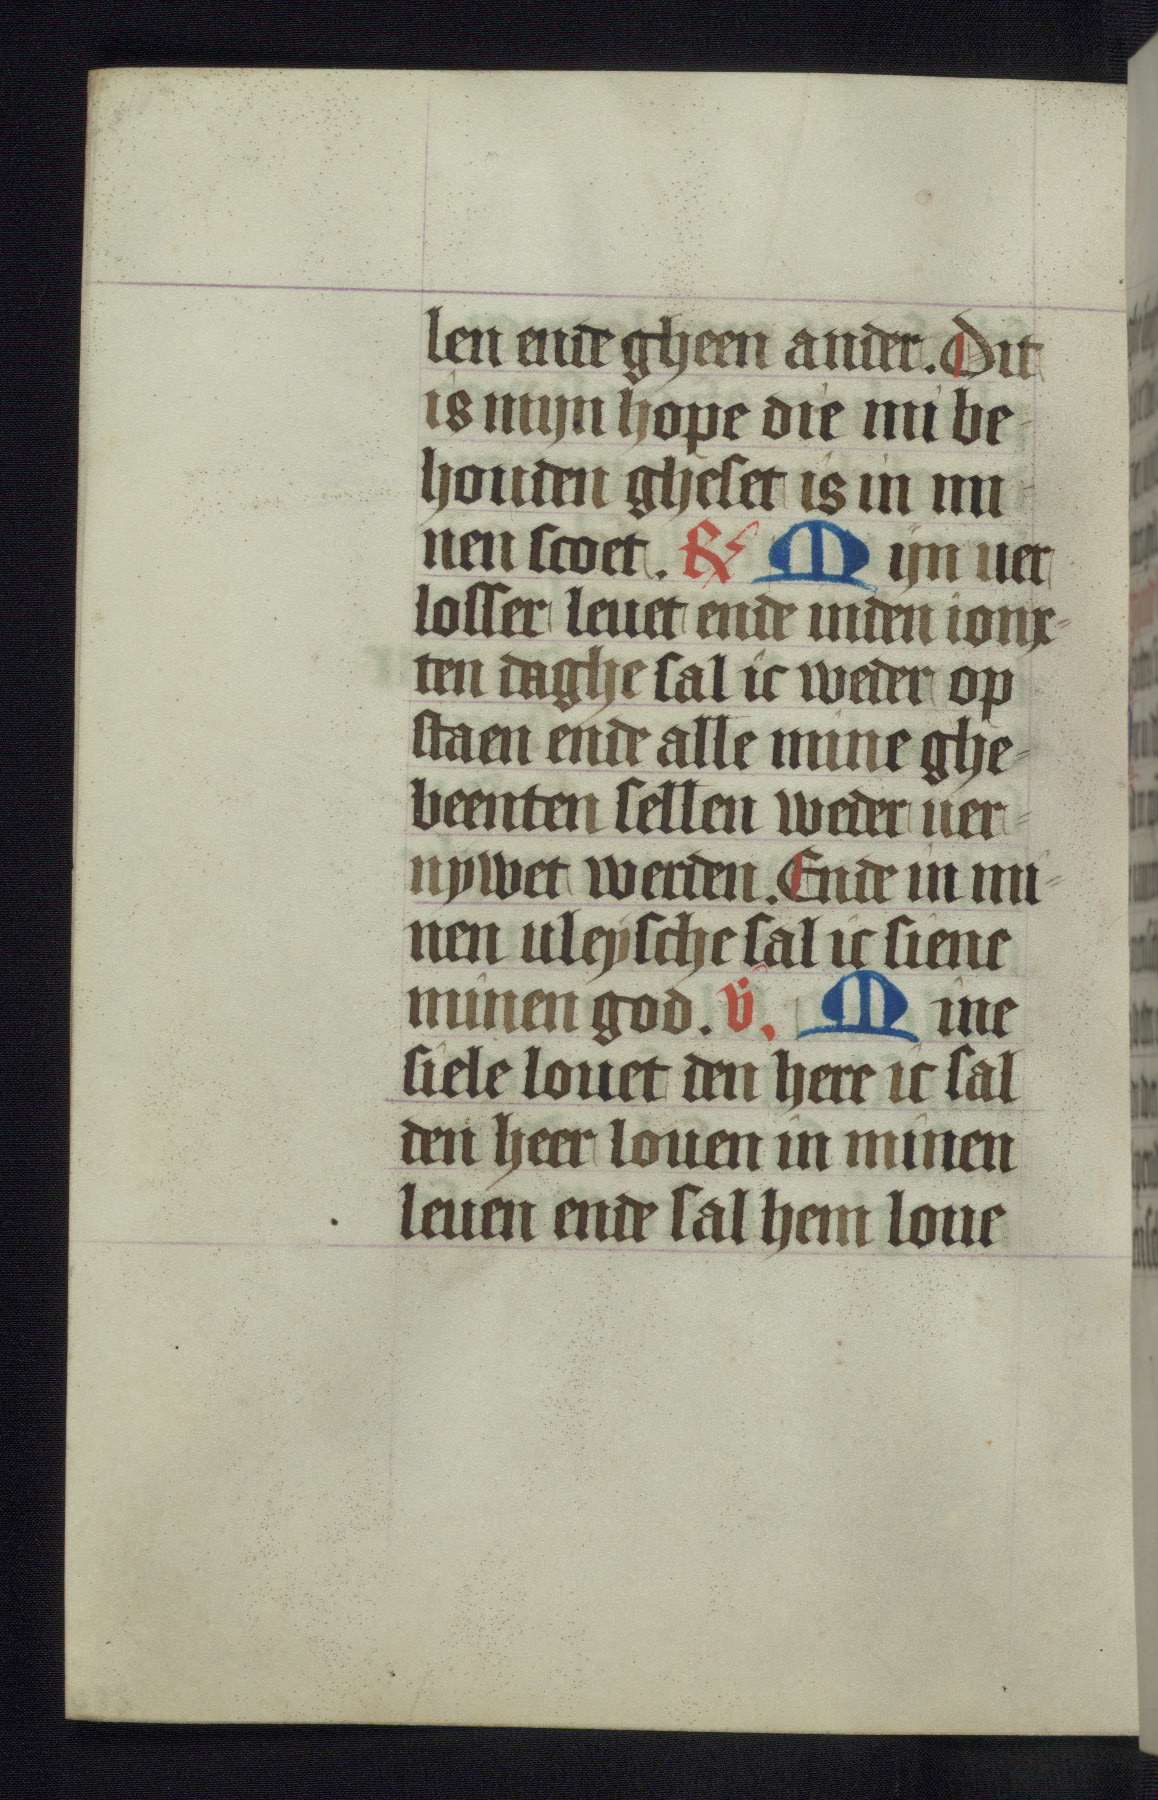 len ende gheen ander. Dit
is mijn hope die mi be-
houden gheset is in mi-
nen scoet. ℟ Mijn ver
losser leuet ende inden ionx-
ten daghe sal ic weder op
staen ende alle mine ghe-
beenten sellen weder uer-
nywet werden. Ende in mi-
nen uleysche sal ic siene
minen god. ℣. Mine
siele louet den here ic sal
den heer louen in minen
leuen ende sal hem loue